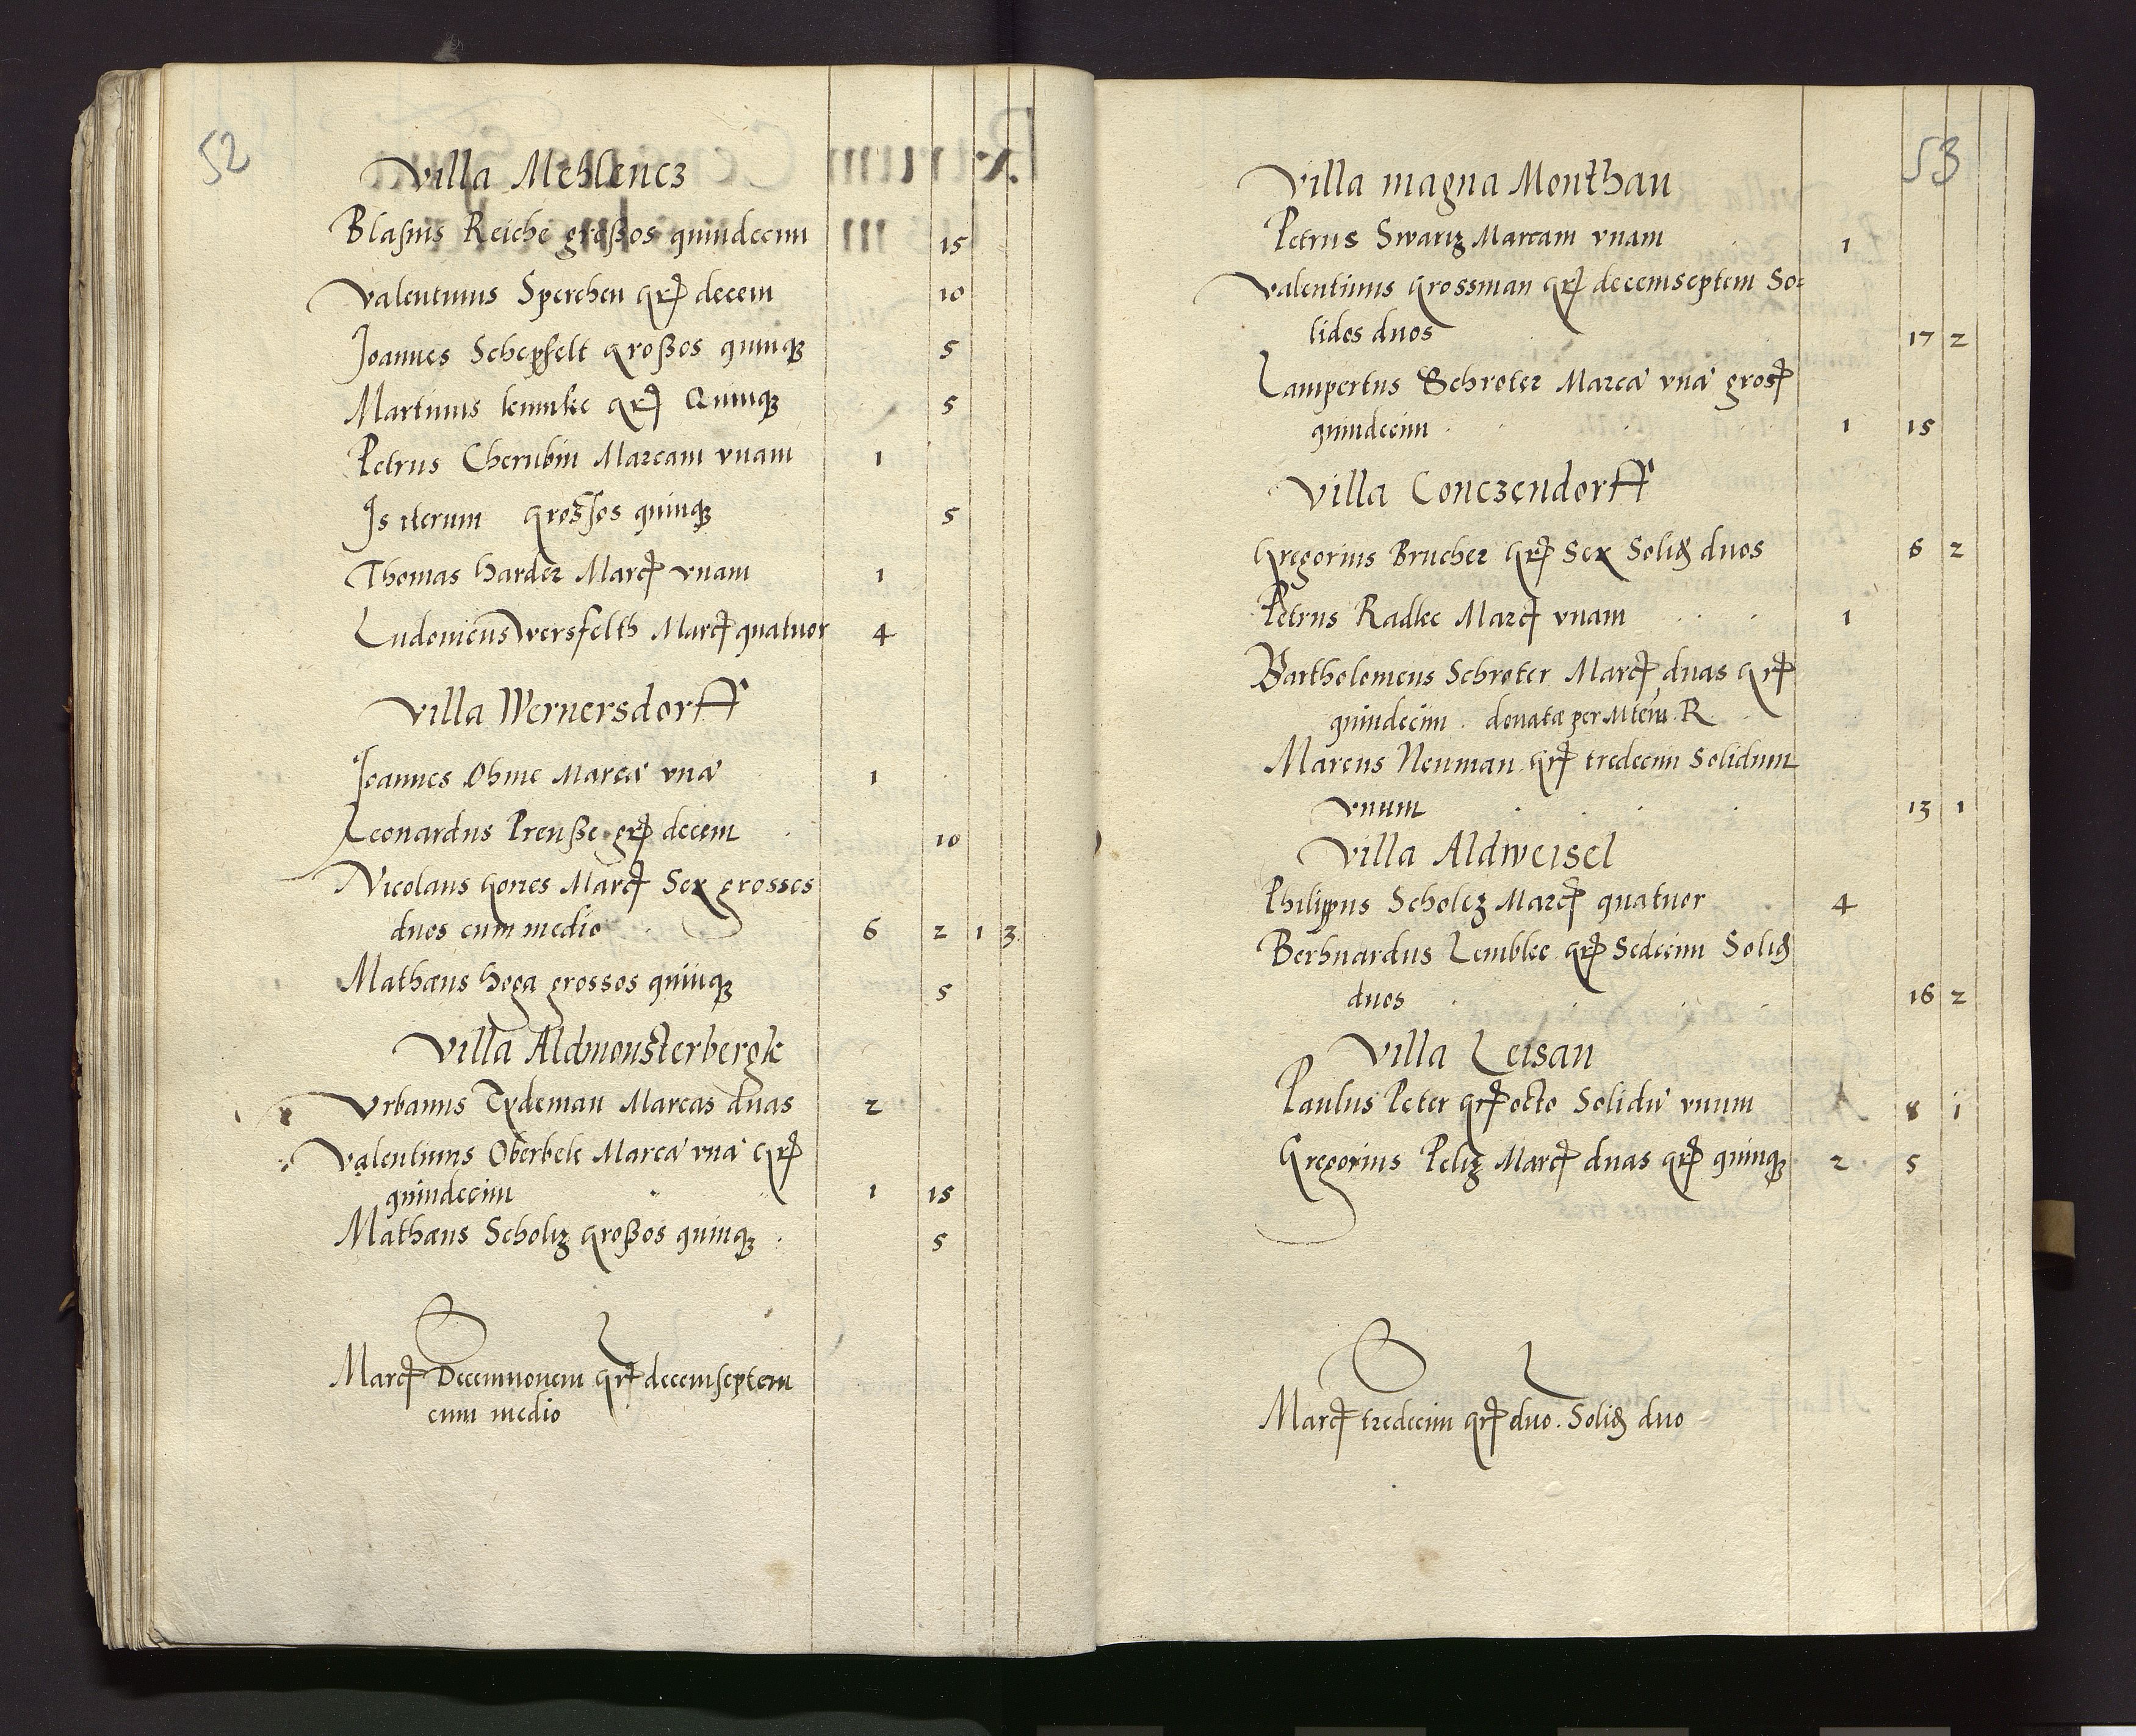 52
Villa Mehlencz
Blasius Reiche großos quindecim 15
Valentinus Sperchen gr decem 10
Joannes Schepfelt großos quinq 5
Martinus kunike gr Quinq 5
Petrus Cherubin Marcam vnam 1
Is iterum grossos quinq 5
Thomas harder Marc vnam 1
Ludouicus wersfelth Marc quatuor 4
Villa Wernersdorff
Joannes Ohme Marcā vnā 1
Leonardus Preuße gr decem 10
Nicolaus gories Marc Sex grossos
duos cum medio 6 2 1 3
Mathæus hoga grossos quinq 5
Villa Aldmonsterbergk
Vrbanus Tydeman Marcas duas 2
Valentinus Oberbek Marcā vnā gr
quindecim 1 15
Mathæus Scholtz großos quinq 5
Marc Decemnouem gr decemseptem
cum medio
53
Villa magna Monthau
Petrus Swartz Marcam vnam 1
Valentinus grossman gr decemseptem So=
lidos duos 17 2
Lampertus Schroter Marcā vnā gros
quindecim 1 15
Villa Conczendorff
Gregorius Brucher gr Sex Solid duos 6 2
Petrus Radke Marc vnam 1
Bartholomeus Schroter Marc duas gr
quindecim . donatæ per Mtem. R
Marcus Neuman gr tredecim Solidum
vnum 13 1
Villa Aldweisel
Philippus Scholcz Marc quatuor 4
Berhnardus Lembke gr Sedecim Solid
duos 16 2
Villa Leisan
Paulus Peter gr octo Solidū vnum 8 1
Gregorius Peltz Marc duas gr quinq 2 5
Marc tredecim gr duo. Solid duo